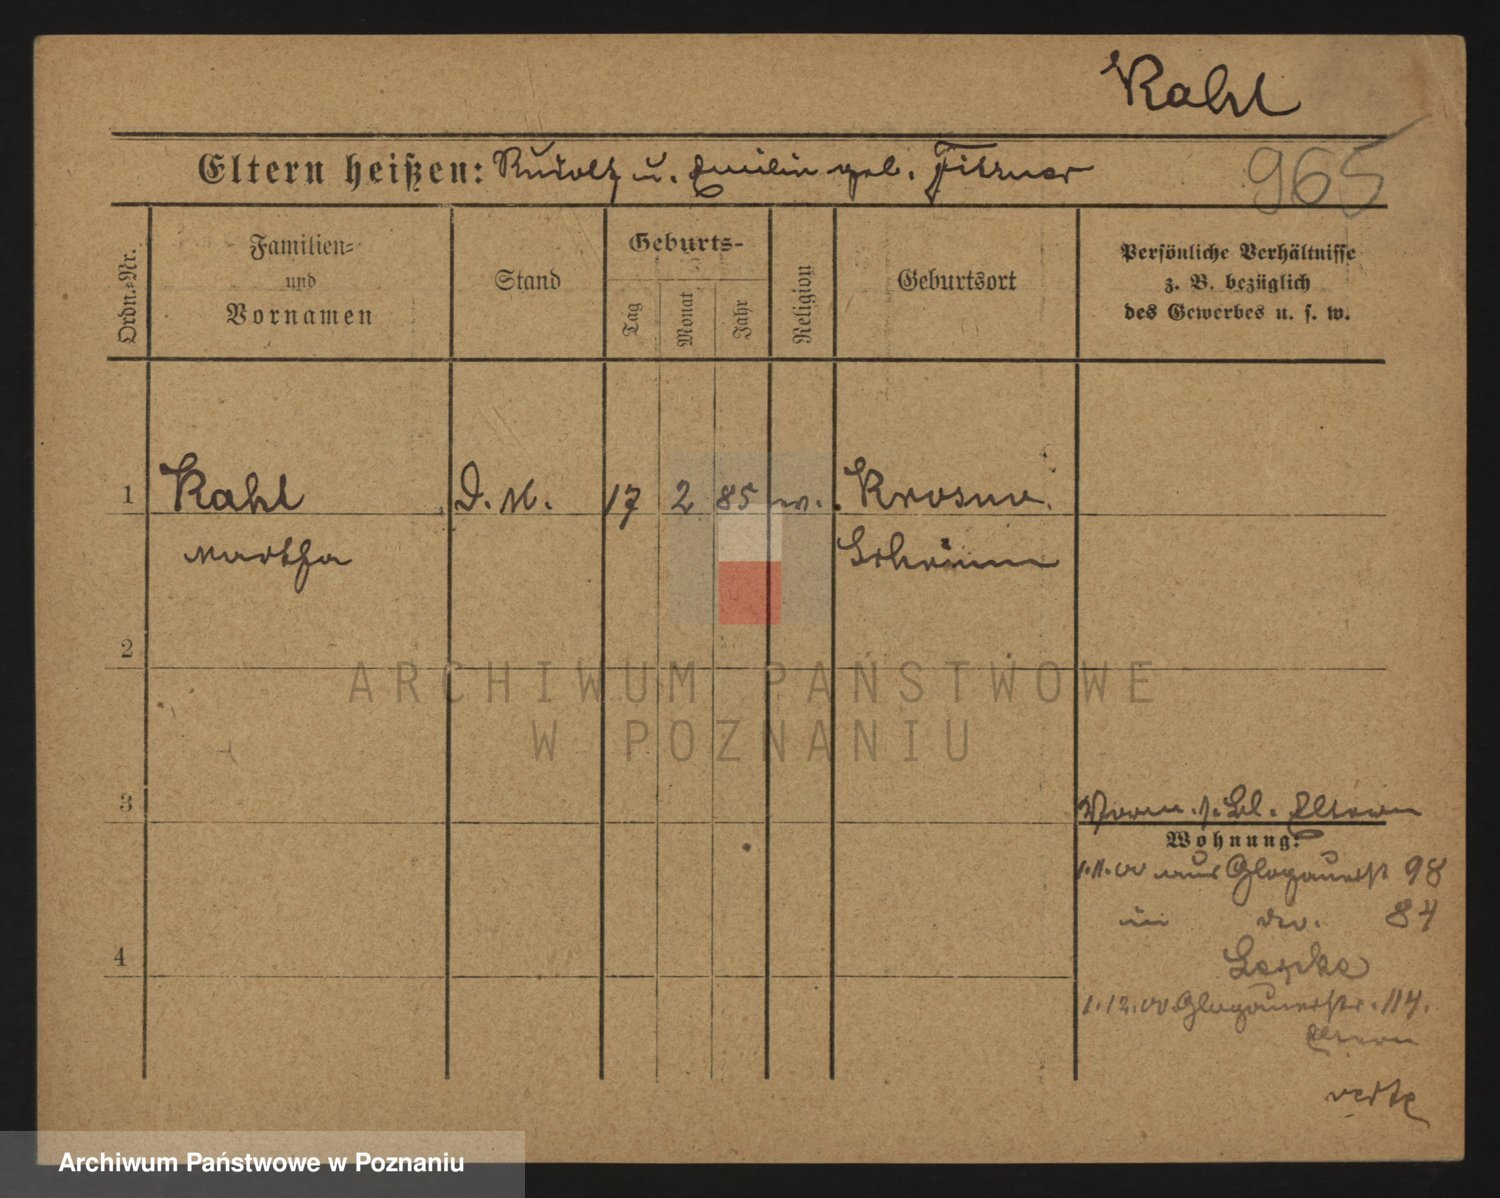 Kahl
965
Eltern heißen: Rudolf u. Emilie geb. Fitzner
Ordn.=Nr.
Familien=
und
Vornamen
Stand
Geburts-
Tag
Monat
Jahr
Religion
Geburtsort
Persönliche Verhältnisse
z. B. bezüglich
des Gewerbes u. s. w.
1 Kahl D. M. 17 2 85 ev. Krosno
Martha Schrimm
2
ARCHIWUM PAŃSTWOWE
W POZNANIU
3
Eltern
Wohnung:
1.11.00 aus Glogauerst 98
in do. 84
4
1.12.00 Glogauerstr. 114.
Eltern
verte
Archiwum Państwowe w Poznaniu